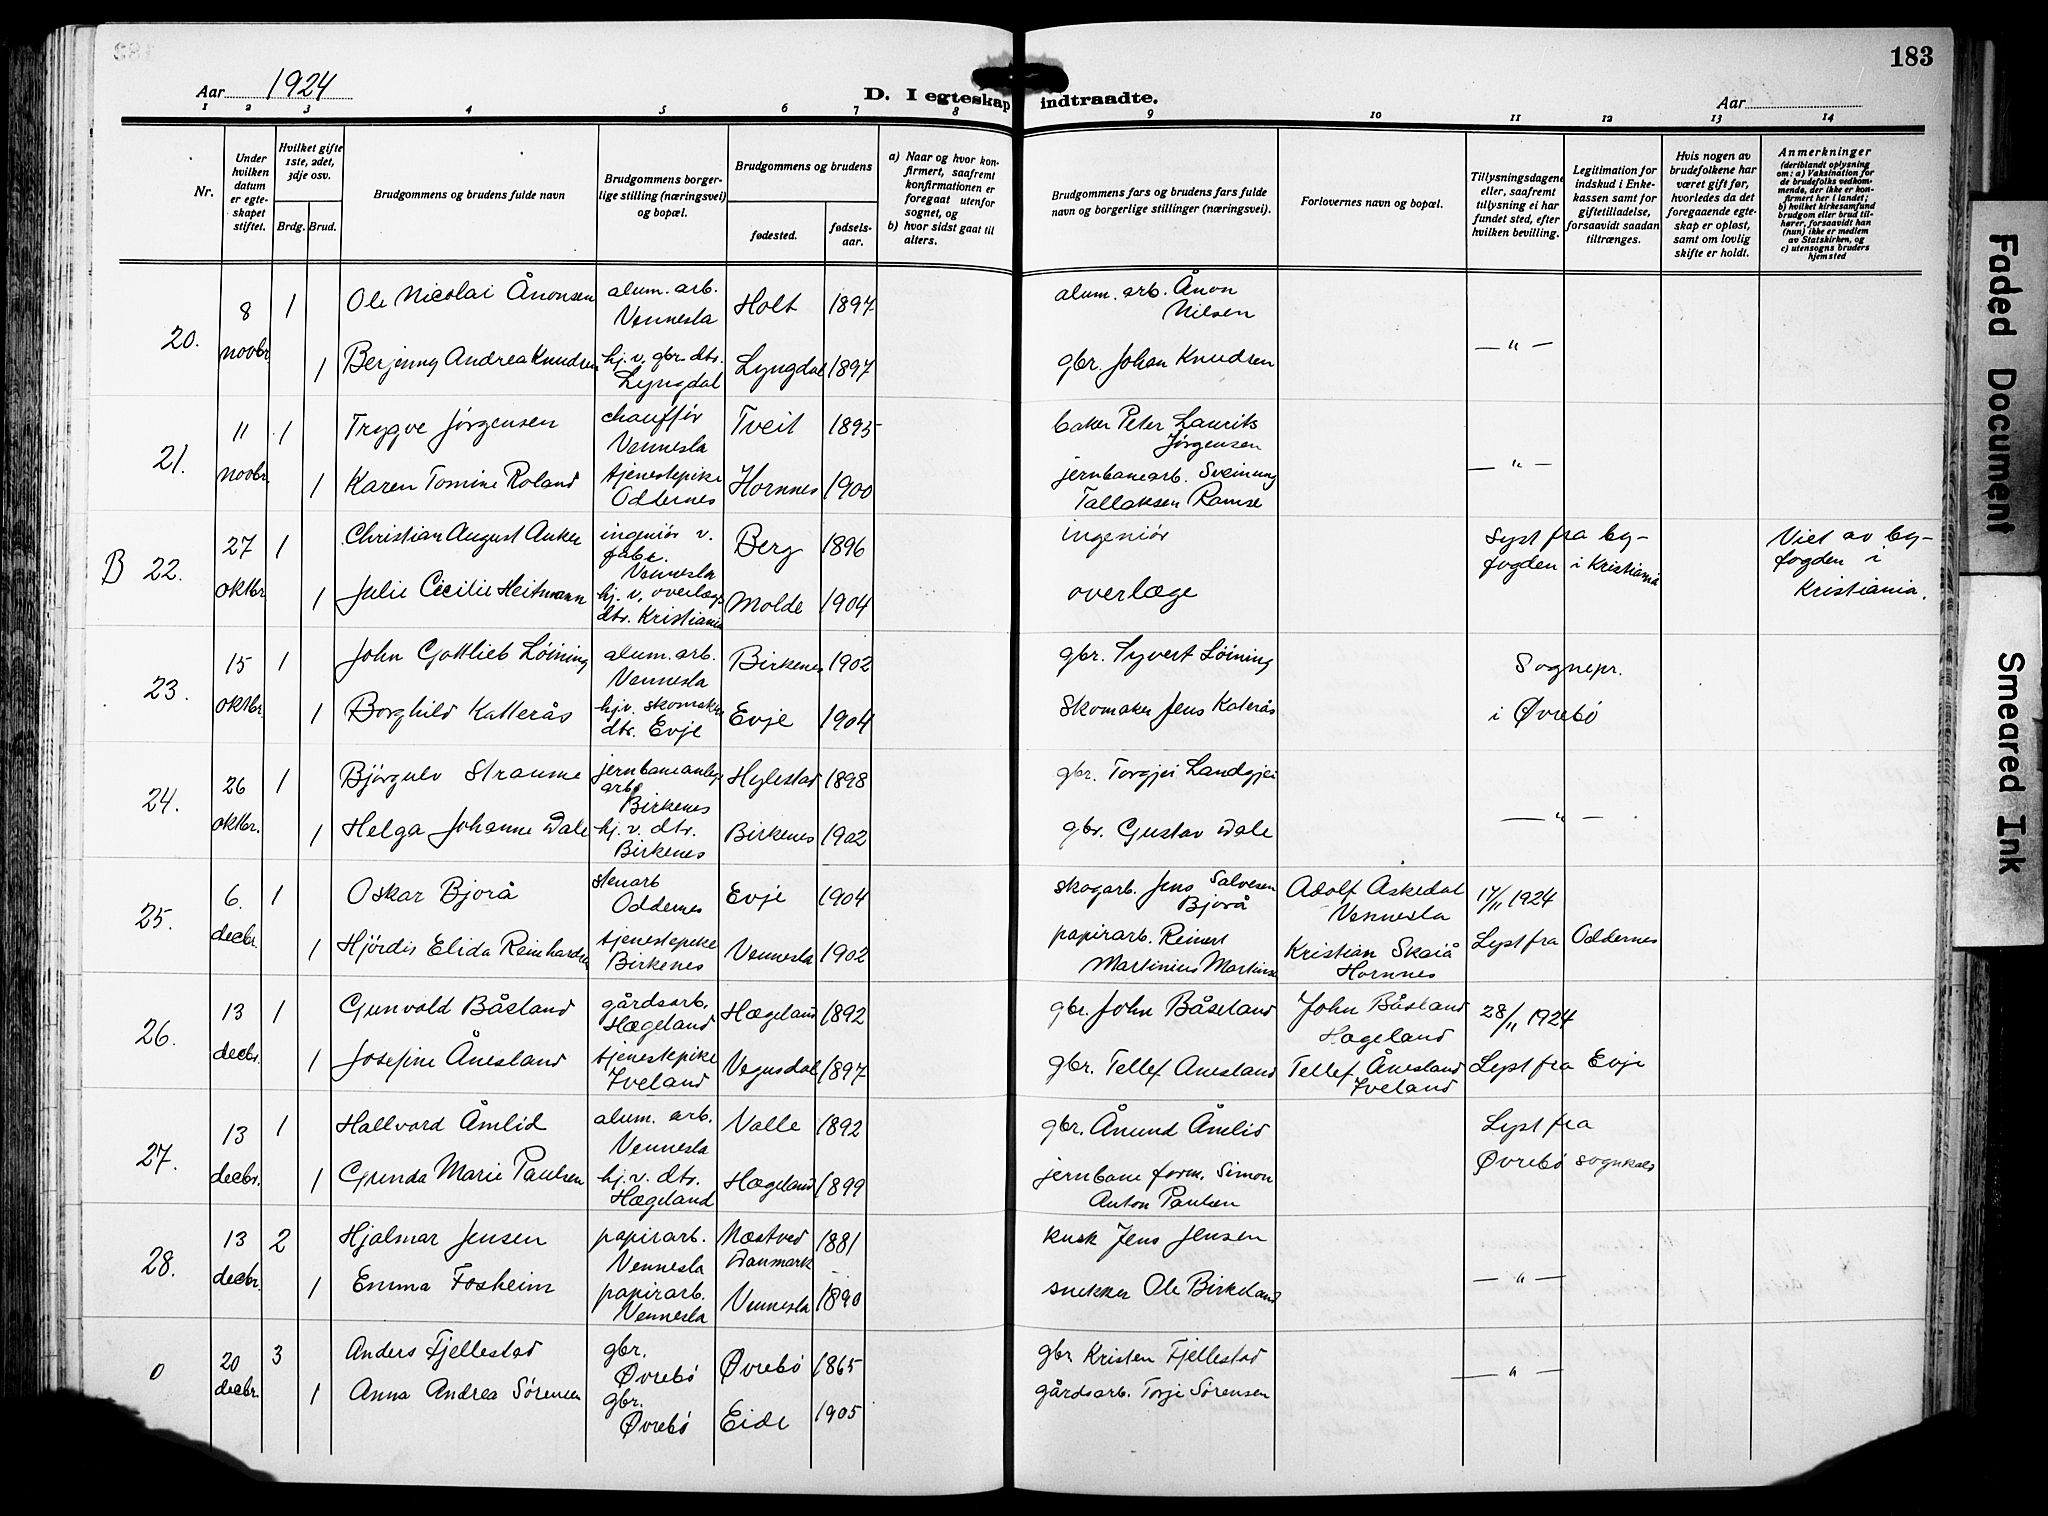 183
Aar 1924
D. I egteskap indtraadte.
Aar
1 2 3 4 5 6 7 8 9 10 11 12 13 14
Nr.
Under hvilken datum er egteskapet stiftet.
Hvilket gifte 1ste, 2det, 3dje osv.
Brdg. Brud.
Brudgommens og brudens fulde navn
Brudgommens borgerlige stilling (næringsvei) og bopæl.
Brudgommens og brudens
fødested.
fødselsaar.
a) Naar og hvor konfirmert, saafremt konfirmationen er foregaat utenfor sognet, og
b) hvor sidst gaat til alters.
Brudgommens fars og brudens fars fulde navn og borgerlige stillinger (næringsvei).
Forlovernes navn og bopæl.
Tillysningsdagene eller, saafremt tillysning ei har fundet sted, efter hvilken bevilling.
Legitimation for indskud i Enkekassen samt for giftetilladelse, forsaavidt saadan tiltrænges.
Hvis nogen av brudefolkene har været gift før, hvorledes da det foregaaende egteskap er opløst, samt om lovlig skifte er holdt.
Anmerkninger
(deriblandt oplysning om: a) Vaksination for de brudefolks vedkommende, der ikke er konfirmert her i landet; b) hvilket kirkesamfund brudgom eller brud tilhører, forsaavidt han (hun) ikke er medlem av Statskirken, og c) utensogns bruders hjemsted
20. 8 novbr. 1 Ole Nicolai Ånonsen alum. arb. Vennesla Holt 1897 alum. arb. Ånon Nilsen
1 Berjenny Andrea Knudsen hj. v. gbr. dtr. Lyngdal Lyngdal 1897 gbr. Johan Knudsen — " —
21. 11 novbr. 1 Trygve Jørgensen chauffør Vennesla Tveit 1895 baker Peter Laurits Jørgensen
1 Karen Tomine Roland tjenestepike Oddernes Hornnes 1900 jernbanearb. Sveinung Tallaksen Ramse — " —
B 22. 27 oktbr 1 Christian August Anker ingeniør v. fabr. Vennesla Berg 1896 ingeniør Lyst fra byfogden i Kristiania Viet av byfogden i Kristiania.
1 Julie Cecilie Heitmann hj. v. overlæge dtr. Kristiania Molde 1904 overlæge
23. 15 oktbr. 1 John Gottlieb Löining alum. arb. Vennesla Birkenes 1902 gbr. Syvert Löining Sognepr.
1 Borghild Katterås hjv. skomaker dtr. Evje Evje 1904 Skomaker Jens Katerås i Øvrebö
24. 26 oktbr. 1 Björgulv Straume jernbaneanlegs arb. Birkenes Hylestad 1898 gbr. Torgjei Landgjei
1 Helga Johanne Dale hj. v. dtr. Birkenes Birkenes 1902 gbr. Gustav Dale — " —
25. 6. decbr. 1 Oskar Bjorå stenarb Oddernes Evje 1904 skogarb. Jens Salvesen Bjorå Adolf Askedal Vennesla 17/11 1924
1 Hjördis Elida Reinhardsen tjenestepike Birkenes Vennesla 1902 papirarb. Reinert Martinius Martinsen Kristian Skaiå Hornnes Lyst fra Oddernes
26. 13 decbr. 1 Gunvald Båsland gårdsarb. Hægeland Hægeland 1892 gbr. John Båseland John Båsland Hægeland 28/11 1924
1 Josefine Ånesland tjenestepike Iveland Vegusdal 1897 gbr. Tellef Anesland Tellef Ånesland Iveland Lyst fra Evje
27. 13 decbr. 1 Hallvard Åmlid alum. arb. Vennesla Valle 1892 gbr. Ånund Åmlid Lyst fra
1 Gunda Marie Paulsen hj. v. dtr. Hægeland Hægeland 1899 jernbane form. Simon Anton Paulsen Øvrebö sognkald
28. 13 decbr. 2 Hjalmar Jensen papirarb. Vennesla Næstved Danmark 1881 kusk Jens Jensen
1 Emma Fosheim papirarb. Vennesla Vennesla 1890 snekker Ole Birkeland — " —
0 20 decbr. 3 Anders Fjellestad gbr. Øvrebö Øvrebö 1865 gbr Kristen Fjellestad
1 Anna Andrea Sörensen gbr. Øvrebö Eide 1905 gårdsarb. Torje Sörensen — " —
Faded Document
Smeared Ink